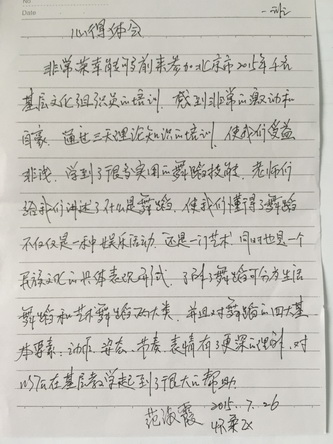 一班
Date
心得体会
非常荣幸能够前来参加北京市2015年千名
基层文化组织员的培训，感到非常的激动和
自豪，通过三天理论知识的培训，使我们受益
非浅，学到了很多实用的舞蹈技能，老师们
给我们讲述了什么是舞蹈，使我们懂得了舞蹈
不仅仅是一种娱乐活动，还是一门艺术，同时也是一个
民族文化的具体表现形式，了解了舞蹈可分为生活
舞蹈和艺术舞蹈两大类，并且对舞蹈的四大基
本要素：动作、姿态、节奏、表情有了更深的理解，对
以后在基层教学起到了很大的帮助。
范淑霞 2015.7.26
怀柔区